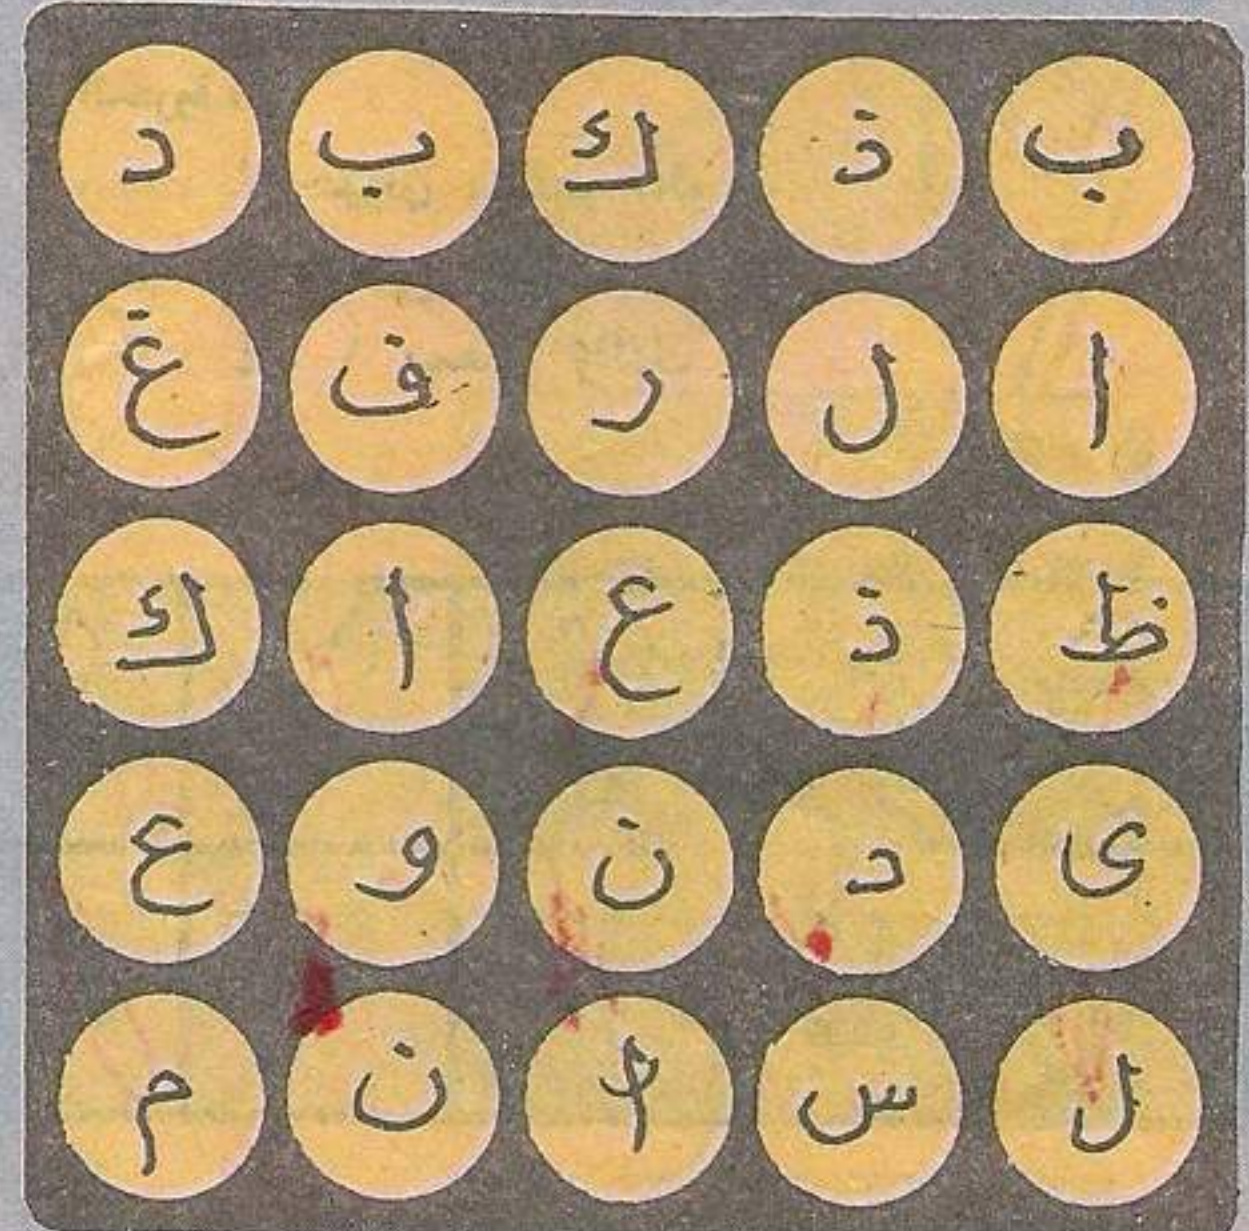 ب ذ ك ب د
ا ل ر ف غ
ظ ذ ع ا ك
ى د ن و ع
ل س ا ن م